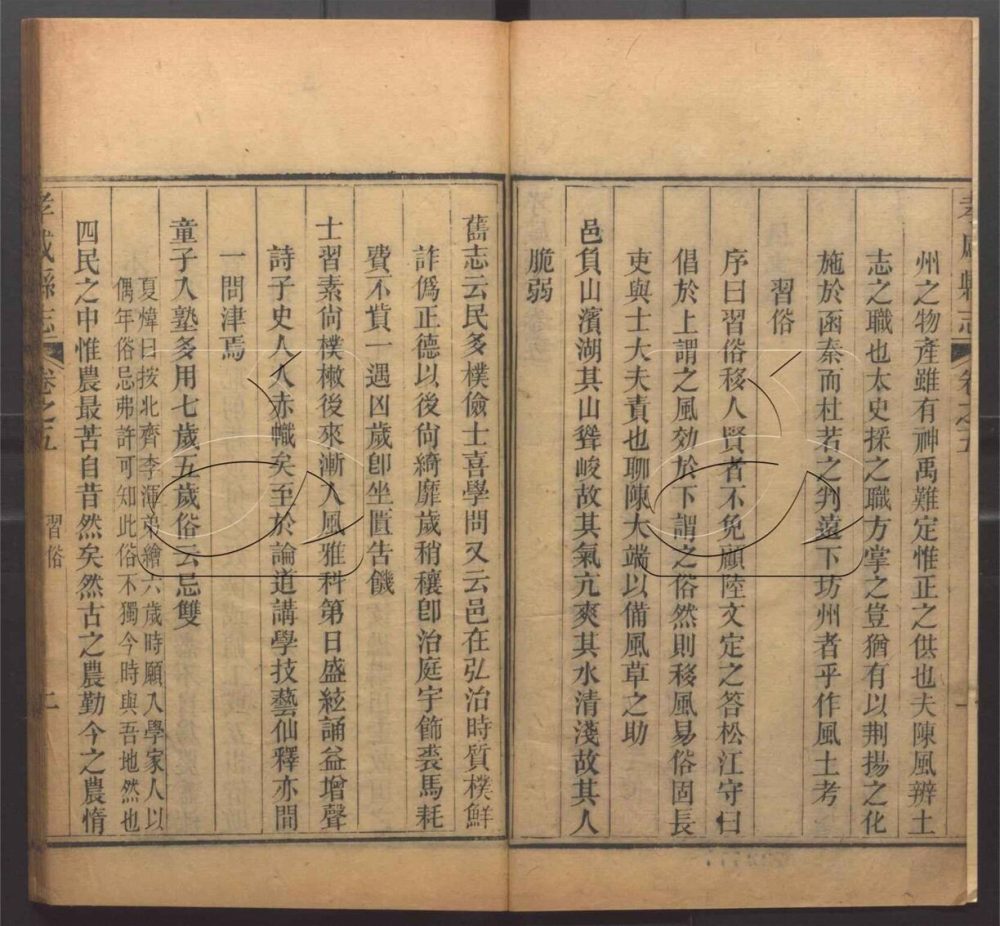 州之物產雖有神禹難定惟正之供也夫陳風辨土
志之職也太史採之職方掌之豈猶有以荆揚之化
施於函秦而杜若之判遠下坊州者乎作風土考
習俗
序曰習俗移人賢者不免顧陸文定之答松江守曰
倡於上謂之風効於下謂之俗然則移風易俗固長
吏與士大夫責也聊陳大端以備風草之助
邑負山濱湖其山聳峻故其氣亢爽其水清淺故其人
脆弱
舊志云民多樸儉士喜學問又云邑在弘治時質樸鮮
詐僞正德以後尙綺靡歲稍穰卽治庭宇飾裘馬耗
費不貲一遇凶歲卽坐匱告饑
士習素尙樸樕後來漸入風雅科第日盛絃誦益增聲
詩子史人人赤幟矣至於論道講學技藝仙釋亦間
一問津焉
童子入塾多用七歲五歲俗云忌雙
夏煒曰按北齊李渾弟繪六歲時願入學家人以
偶年俗忌弗許可知此俗不獨今時與吾地然也
四民之中惟農最苦自昔然矣然古之農勤今之農惰
縣志
卷之五
習俗